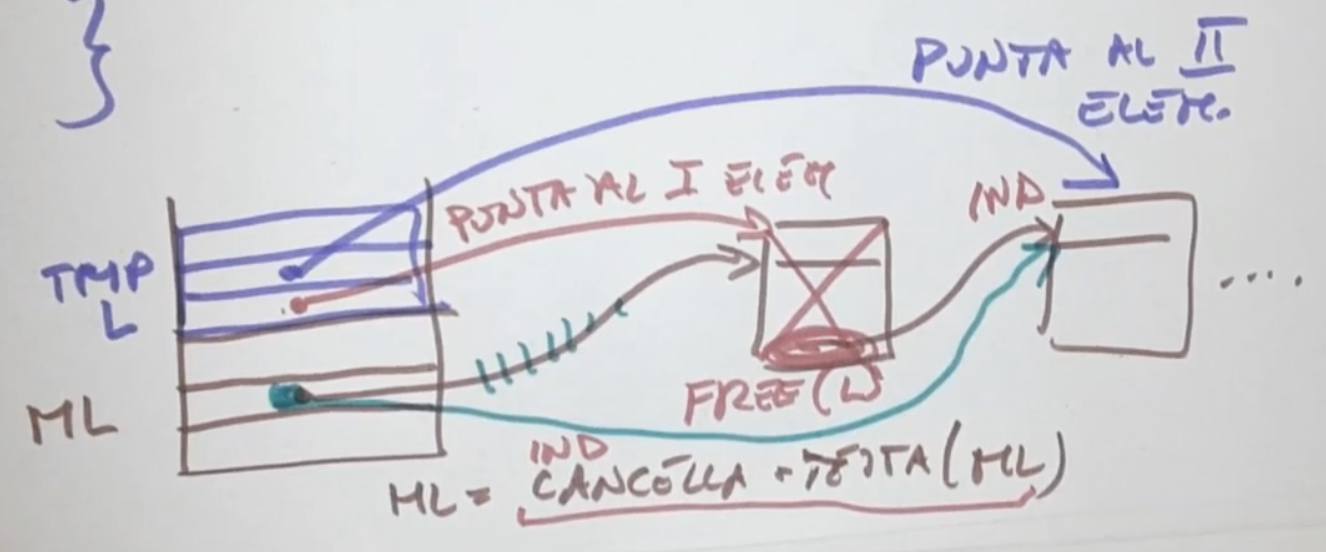 }
PUNTA AL II
ELEM.
PUNTA AL I ELEM
IND
TMP
L
....
FREE(L)
ML
IND
ML = CANCELLA-TESTA(ML)